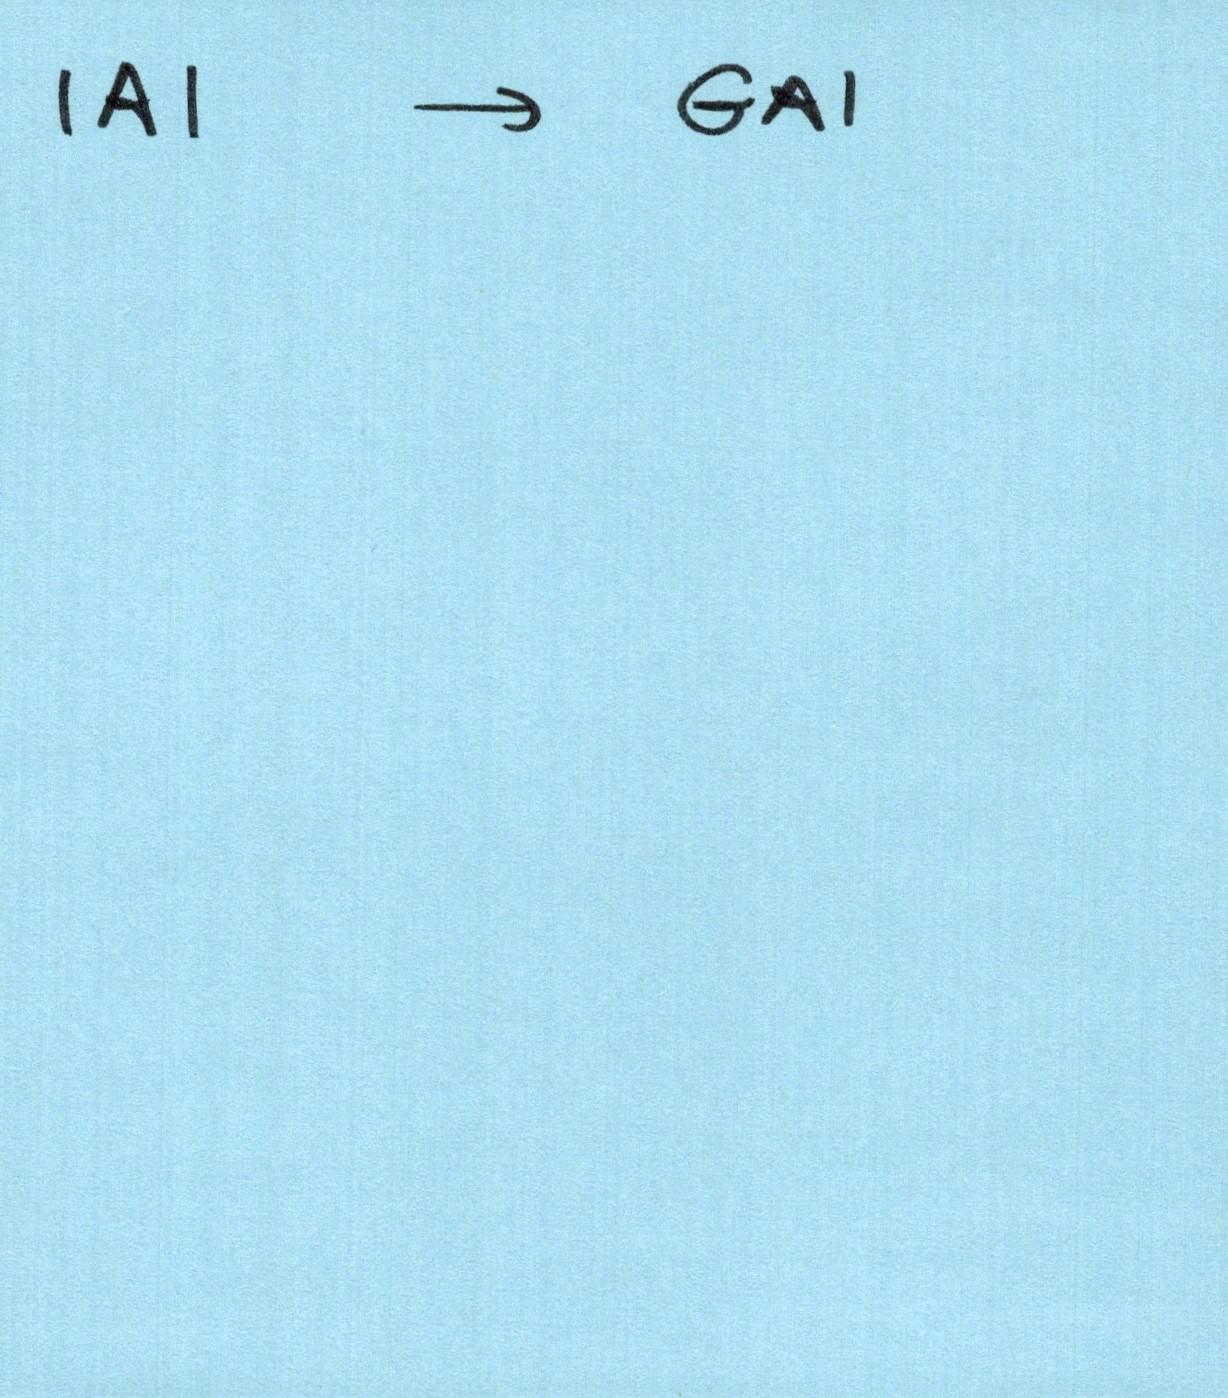 IAI → GAI